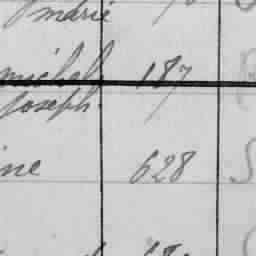 marie
michel 187
Joseph
ine 628